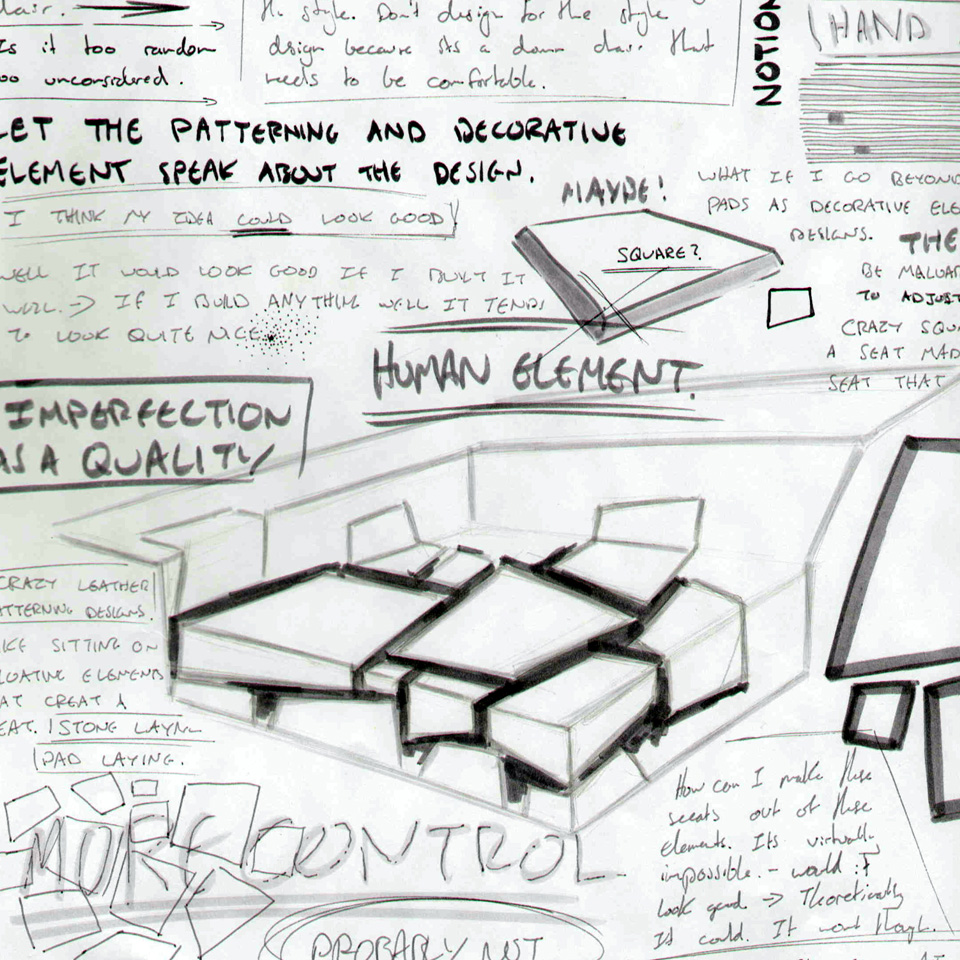 Is it too random
unconsidered.
the style. Don't design for the style
design because its a damn chair that
needs to be comfortable.
NOTION
HAND
LET THE PATTERNING AND DECORATIVE
ELEMENT SPEAK ABOUT THE DESIGN.
I THINK MY IDEA COULD LOOK GOOD!
WELL IT WOULD LOOK GOOD IF I BUILT IT
WELL. -> IF I BUILD ANYTHING WELL IT TENDS
TO LOOK QUITE NICE
MAYBE!
SQUARE?
WHAT IF I GO BEYOND
PADS AS DECORATIVE ELE
DESIGNS. THE
BE MALUAB
TO ADJUST
CRAZY SQU
A SEAT MAD
SEAT THAT
HUMAN ELEMENT.
IMPERFECTION
AS A QUALITY
CRAZY LEATHER
PATTERNING DESIGNS.
LIKE SITTING ON
FLOATING ELEMENTS
THAT CREAT A
SEAT. STONE LAYING
PAD LAYING.
MORE CONTROL
PROBABLY NOT
How can I make these
seats out of these
elements. Its virtually
impossible. - would it
look good -> Theoretically
It could. It wont though.